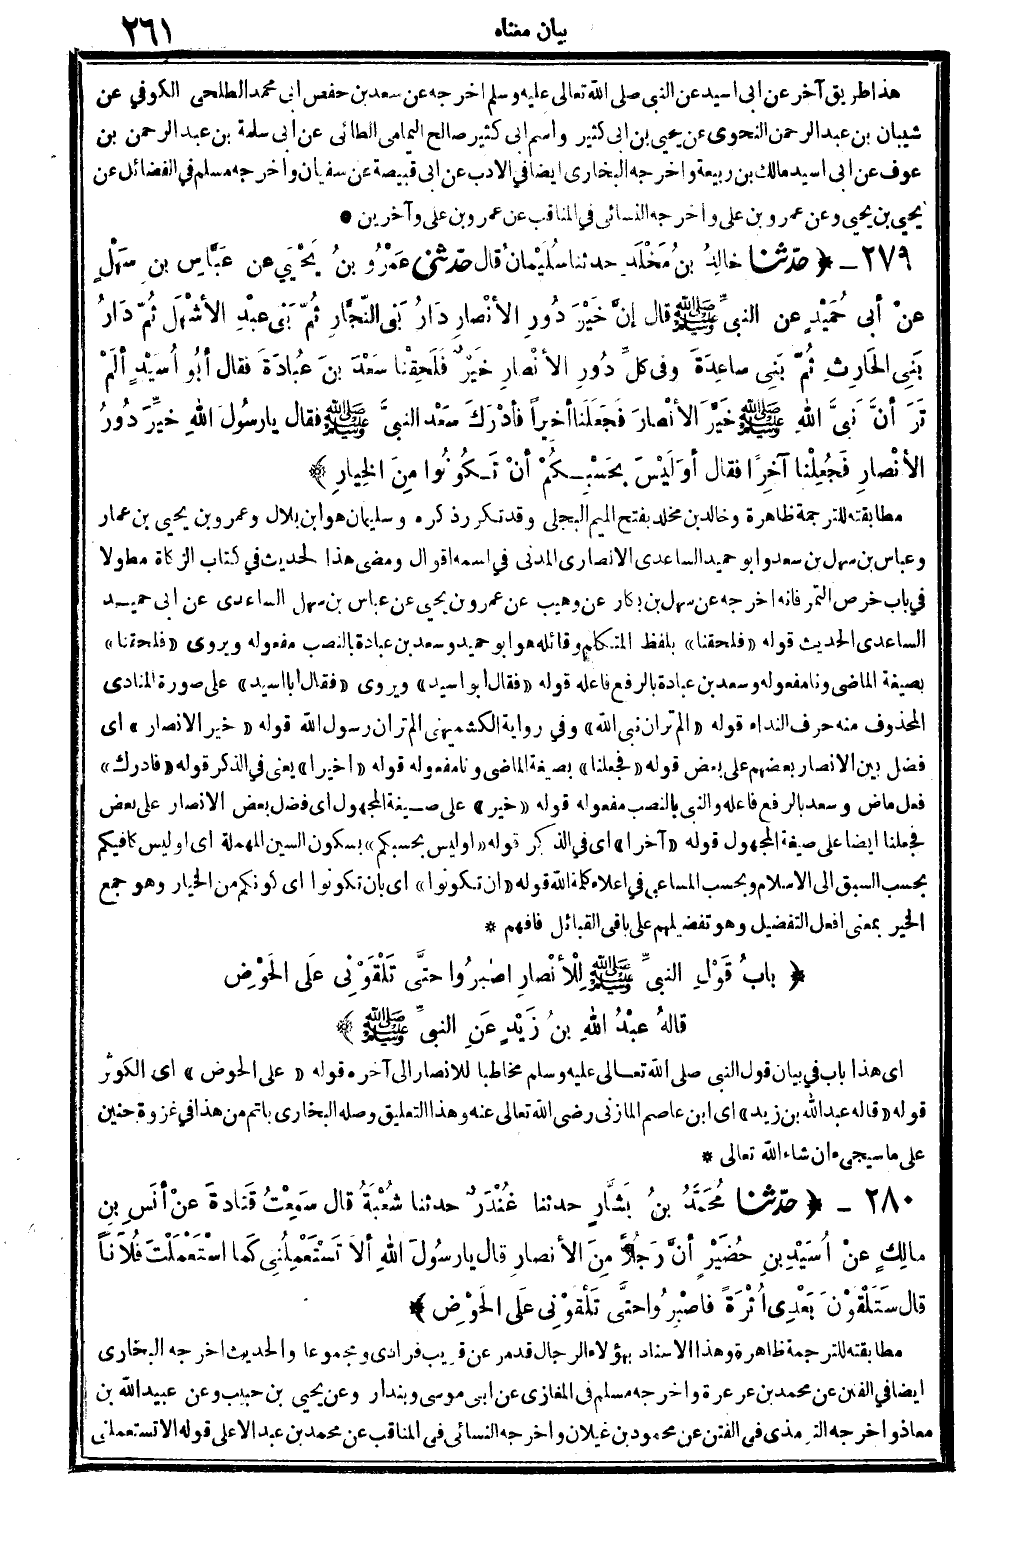 بيان معناه ٢٦١
هذا طريق آخر عن ابى اسيد عن النبى صلى الله تعالى عليه وسلم اخرجه عن سعد بن حفص ابى محمد الطلحى الكوفي عن
شيبان بن عبد الرحمن النحوى عن يحيى بن ابى كثير واسم ابى كثير صالح اليمامى الطائى عن ابى سلمة بن عبد الرحمن بن
عوف عن ابى اسيد مالك بن ربيعة واخرجه البخارى ايضا في الادب عن ابى قبيصة عن سفيان واخرجه مسلم في الفضائل عن
يحيى بن يحيى وعن عمرو بن على واخرجه النسائى في المناقب عن عمرو بن على وآخرين *
٢٧٩ ـ ﴿ حدّثنا خالِدُ بنُ مُخْلَدٍ حدثنا سُلَيْمانُ قال حدّثنى عَمْرُو بنُ يَحْيَى عن عَبَّاسِ بنِ سَهْلٍ
عنْ أبى حُمَيْدٍ عن النبىِّ ﷺ قال إنَّ خَيْرَ دُورِ الأنْصارِ دَارُ بَنى النَّجَّارِ ثُمَّ بَنى عبْدِ الأشْهَلِ ثُمَّ دَارُ
بَنِى الحَارِثِ ثُمَّ بَنِى ساعِدَةَ وفى كلِّ دُورِ الأنْصارِ خَيْرٌ فَلَحِقْنا سَعْدَ بنَ عُبادَةَ فقال أبُو أُسَيْدٍ ألَمْ
تَرَ أنَّ نَبىَّ اللهِ ﷺ خَيَّرَ الأنْصارَ فَجَعَلَنا أخيراً فأدْرَكَ سَعْد النبىَّ ﷺ فقال يا رسُولَ اللهِ خيِّرَ دُورُ
الأنْصارِ فَجُعِلْنا آخِرًا فقال أوَلَيْسَ بِحَسْبِـكُمْ أنْ تَـكُونُوا مِنَ الخِيارِ ﴾
مطابقته للترجمة ظاهرة وخالد بن مخلد بفتح الميم البجلى وقد تكرر ذكره وسليمان هو ابن بلال وعمرو بن يحيى بن عمار
وعباس بن سهل بن سعد وابو حميد الساعدى الانصارى المدنى في اسمه اقوال ومضى هذا الحديث في كتاب الزكاة مطولا
في باب خرص التمر فانه اخرجه عن سهل بن بكار عن وهيب عن عمرو بن يحيى عن عباس بن سهل الساعدى عن ابى حميـد
الساعدى الحديث قوله «فلحقنا» بلفظ المتكلم وقائله هو ابو حميد وسعد بن عبادة بالنصب مفعوله ويروى «فلحقنا»
بصيغة الماضى ونا مفعوله وسعد بن عبادة بالرفع فاعله قوله «فقال ابو اسيد» ويروى «فقال ابا اسيد» على صورة المنادى
المحذوف منه حرف النداء قوله «الم تر ان نبى الله» وفي رواية الكشميهنى الم تر ان رسول الله قوله «خير الانصار» اى
فضل بين الانصار بعضهم على بعض قوله «فجعلنا» بصيغة الماضى ونا مفعوله قوله «اخيرا» يعنى في الذكر قوله «فادرك»
فعل ماض وسعد بالرفع فاعله والنبى بالنصب مفعوله قوله «خير» على صـيغة المجهول اى فضل بعض الانصار على بعض
فجعلنا ايضا على صيغة المجهول قوله «آخرا» اى في الذكر قوله «اوليس بحسبكم» بسكون السين المهملة اى اوليس كافيكم
بحسب السبق الى الاسلام وبحسب المساعى في اعلاء كلمة الله قوله «ان تكونوا» اى بان تكونوا اى كونكم من الخيار وهو جمع
الخير بمعنى افعل التفضيل وهو تفضيلهم على باقى القبائل فافهم *
﴿ بابُ قَوْلِ النبىِّ ﷺ لِلْأنْصارِ اصْبرُوا حتَّى تَلْقَوْنِى عَلَى الحَوْضِ
قالهُ عبْدُ اللهِ بنُ زَيْدٍ عَنِ النبىِّ ﷺ ﴾
اى هذا باب في بيان قول النبى صلى الله تعـالى عليه وسلم مخاطبا للانصار الى آخره قوله «على الحوض» اى الكوثر
قوله «قاله عبد الله بن زيد» اى ابن عاصم المازنى رضى الله تعالى عنه وهذا التعليق وصله البخارى باتم من هذا في غزوة حنين
على ما سيجىء ان شاء الله تعالى *
٢٨٠ ـ ﴿ حدّثنا مُحَمَّدُ بنُ بَشَّارٍ حدثنا غُنْدَرٌ حدثنا شُعْبَةُ قال سَمِعْتُ قَتادةَ عنْ أنَسِ بنِ
مالِكٍ عنْ أُسَيْدِ بنِ حُضَيْرٍ أنَّ رَجُلاً مِنَ الأنصارِ قال يا رسُولَ اللهِ ألاَ تَسْتَعْمِلُنِى كَما اسْتَعْمَلْتَ فُلاَناً
قال سَتَلْقَوْنَ بَعْدِى أُثْرَةً فاصْبِرُوا حتَّى تَلْقَوْنى عَلَى الحَوْضِ ﴾
مطابقته للترجمة ظاهرة وهذا الاسناد بهؤلاء الرجال قد مر عن قريب فرادى ومجموعا والحديث اخرجه البخارى
ايضا في الفتن عن محمد بن عرعرة واخرجه مسلم فى المغازى عن ابى موسى وبندار وعن يحيى بن حبيب وعن عبيد الله بن
معاذ واخرجه الترمذى فى الفتن عن محمود بن غيلان واخرجه النسائى فى المناقب عن محمد بن عبد الاعلى قوله الا تستعملنى